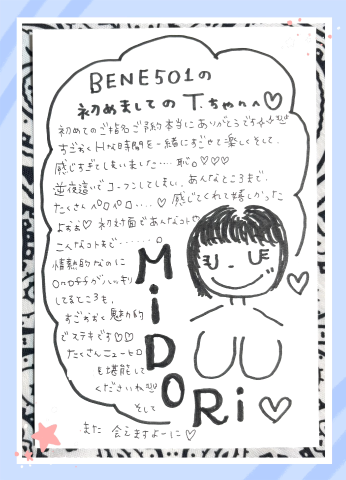 BENE501の
初めましてのT.ちゃんへ♡
初めてのご指名ご予約本当にありがとうです
すごおくHな時間を一緒にすごせて楽しくそして、
感じすぎてしまいました…恥。♡♡♡
逆夜這いでコーフンしてしまい、あんなところまで、
たくさんペロペロ…。♡感じてくれて嬉しかった
よぉぉ♡初対面であんなコト♡
こんなコトまで・・・・・・。
情熱的なのに
onoffがハッキリ
してるところも、
すごおおく魅力的
でステキです♡♡
たくさんニューヒロ
を堪能して
くださいね
そして
また会えますよーに♡
MiDORi♡